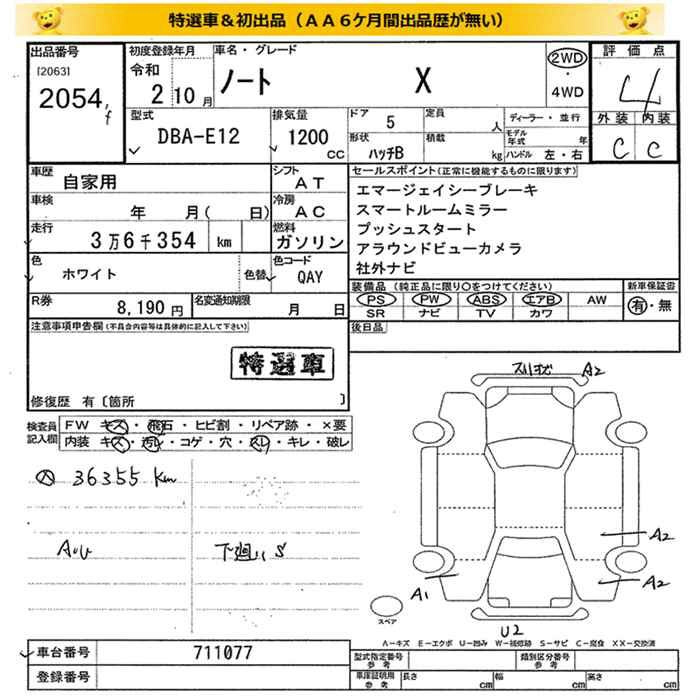 特選車＆初出品（ＡＡ６ケ月間出品歴が無い）
出品番号
[2063]
2054
f
初度登録年月
令和
2 10 月
車名・グレード
ノート X
2WD
・
4WD
評価点
4
外装 内装
C C
型式
DBA-E12
排気量
1200
CC
ドア 5
形状 ハッチB
定員 人
積載 kg
ディーラー・並行
モデル年式 年
ハンドル 左・右
車歴
自家用
シフト
AT
車検
年 月( 日)
冷房
AC
走行
3万6千354 km
燃料
ガソリン
色
ホワイト
色替
色コード
QAY
R券
8,190 円
名変通知期限
月 日
セールスポイント(正常に機能するものに限ります)
エマージェイシーブレーキ
スマートルームミラー
プッシュスタート
アラウンドビューカメラ
社外ナビ
装備品 (純正品に限り○をつけてください)
新車保証書
PS PW ABS エアB AW
有・無
SR ナビ TV カワ
後日品
注意事項申告欄(不具合内容等は具体的に記入して下さい)
特選車
修復歴 有〔箇所 〕
検査員記入欄
FW キズ・飛石・ヒビ割・リペア跡・×要
内装 キズ・汚レ・コゲ・穴・スレ・キレ・破レ
36355 km
下廻り S
スリキズ A2
A2
A2
A1
U2
スペア
A-キズ E-エクボ U-凹み W-補修跡 S-サビ C-腐食 XX-交換済
車台番号
711077
登録番号
型式指定番号
参考
類別区分番号
参考
車庫証明用
参考
長さ cm
幅 cm
高さ cm